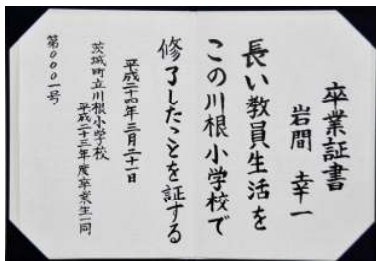 卒業証書
岩間 幸一
長い教員生活を
この川根小学校で
修了したことを証する
平成二十四年三月二十一日
茨城町立川根小学校
平成二十三年度卒業生一同
第〇〇〇一号